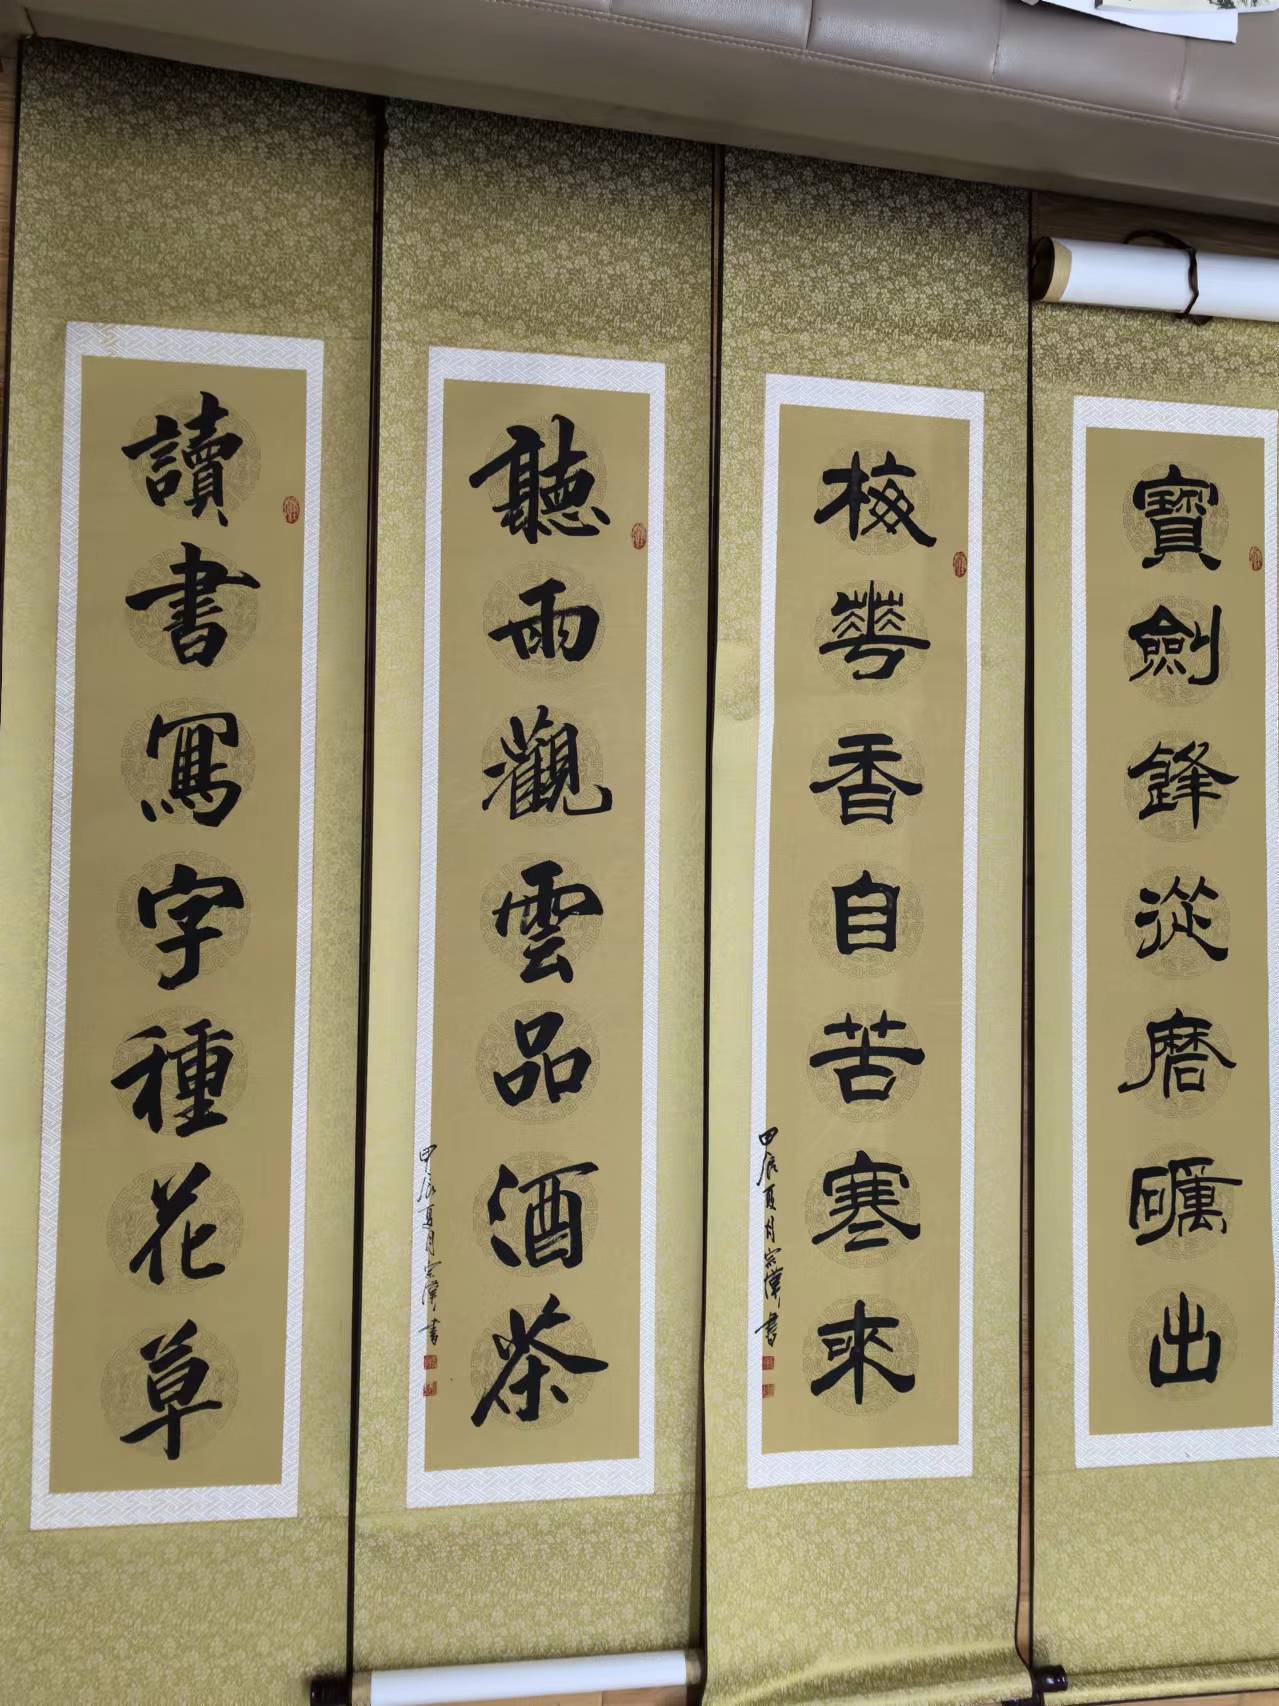 寶劍鋒從磨礪出
梅蘤香自苦寒來
甲辰夏月宗偉書
聽雨觀雲品酒茶
甲辰夏月宗偉書
讀書寫字種花草